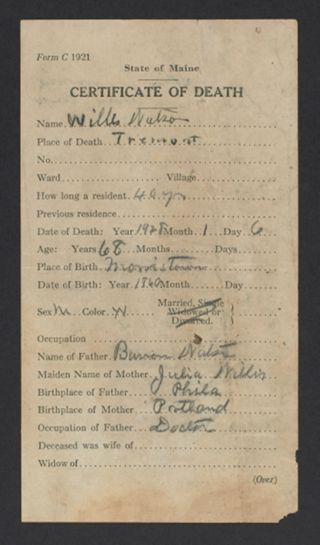 Form C 1921
State of Maine
CERTIFICATE OF DEATH
Name Willis Watson
Place of Death Tremont
No.
Ward Village
How long a resident 40 yr
Previous residence
Date of Death: Year 1928 Month 1 Day 6
Age: Years 68 Months Days
Place of Birth Morristown
Date of Birth: Year 1860 Month Day
Sex M. Color W Married, Single Widowed or Divorced.
Occupation
Name of Father Watson
Maiden Name of Mother Julia Willis
Birthplace of Father Phila
Birthplace of Mother Portland
Occupation of Father Doctor
Deceased was wife of
Widow of
(Over)